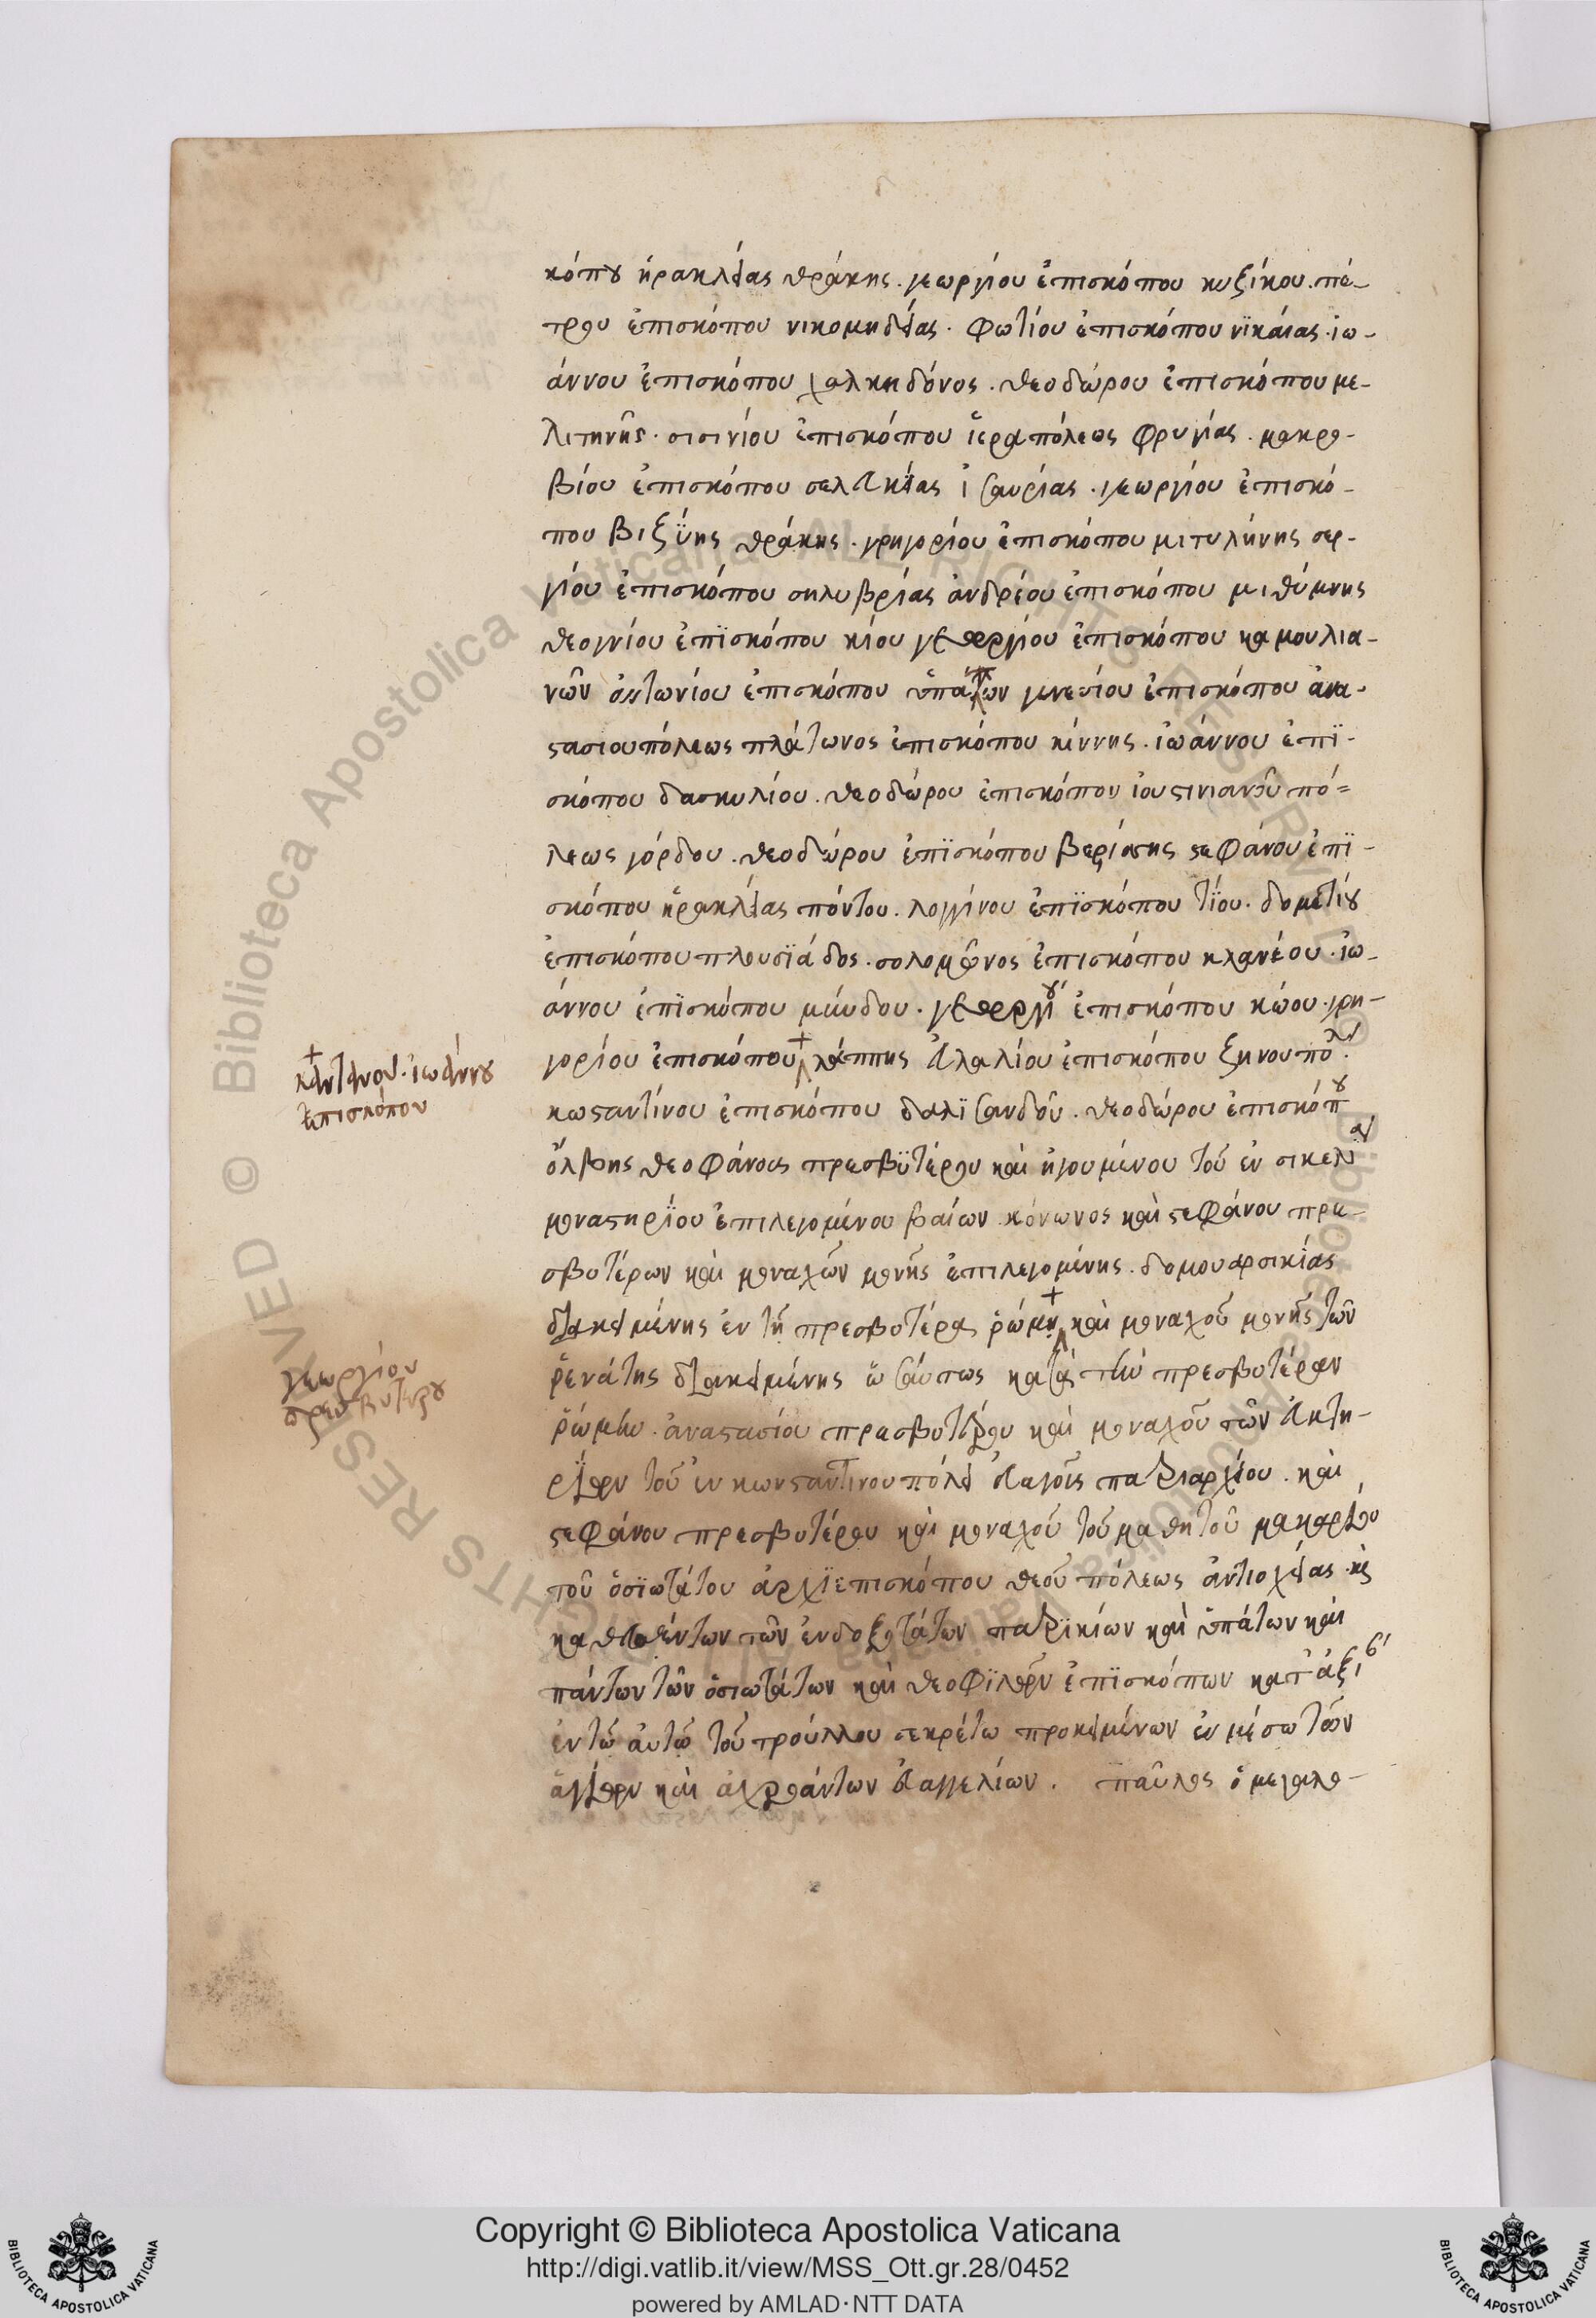 κόπου ἡρακλείας θράκης. γεωργίου ἐπισκόπου κυζίκου. πέ-
τρου ἐπισκόπου νικομηδείας. φωτίου ἐπισκόπου νϊκαίας. ἰω-
άννου ἐπισκόπου χαλκηδόνος. θεοδώρου ἐπισκόπου με-
λιτηνῆς. σισινίου ἐπισκόπου ἱεραπόλεως φρυγίας. μακρο-
βίου ἐπισκόπου σελευκείας ἰσαυρίας. γεωργίου ἐπισκό-
που βιζϋης θράκης. γρηγορίου ἐπισκόπου μιτυλήνης σερ-
γίου ἐπισκόπου σηλυβρίας ἀνδρέου ἐπισκόπου μιθύμνης
θεογνίου ἐπϊσκόπου κίου γεωργίου ἐπισκόπου καμουλια-
νῶν ἀντωνίου ἐπισκόπου ὑπαίπων γενεσίου ἐπισκόπου ἀνα-
στασιουπόλεως πλάτωνος ἐπισκόπου κίννης. ἰωάννου ἐπϊ-
σκόπου δασκυλίου. θεοδώρου ἐπισκόπου ἰουστινιανοῦ πό=
λεως γόρδου. θεοδώρου ἐπϊσκόπου βερίσσης στεφάνου ἐπϊ-
σκόπου ἡρακλείας πόντου. λογγίνου ἐπϊσκόπου τΐου. δομετίου
ἐπισκόπου πλουσϊάδος. σολομῶνος ἐπισκόπου κλανέου. ἰω-
άννου ἐπϊσκόπου μίνδου. γεωργίου ἐπισκόπου κώου. γρη-
γορίου ἐπισκόπου λάππης εὐλαλίου ἐπισκόπου ζηνουπόλ.
κωσταντίνου ἐπισκόπου δαλϊσανδοῦ. θεοδώρου ἐπισκόπου
ὄλβης θεοφάνους πρεσβϋτέρου καὶ ἡγουμένου τοῦ ἐν σικελία
μοναστηρΐου ἐπιλεγομένου βαίων. κόνωνος καὶ στεφάνου πρε-
σβυτέρων καὶ μοναχῶν μονῆς ἐπιλεγομένης. δομουαρσικίας
διακειμένης ἐν τῇ πρεσβυτέρα ῥώμη καὶ μοναχοῦ μονῆς τῶν
ῥενάτης διακειμένης ὡσαύτως κατὰ τὴν πρεσβυτέραν
ῥώμην. ἀναστασίου πρεσβυτέρου καὶ μοναχοῦ τῶν εὐκτη-
ρίων τοῦ ἐν κωνσταντινουπόλει εὐαγοῦς πατριαρχείου. καὶ
στεφάνου πρεσβυτέρου καὶ μοναχοῦ τοῦ μαθητοῦ μακαρίου
τοῦ ὁσϊωτάτου ἀρχϊεπισκόπου θεοῦ πόλεως ἀντιοχείας. καὶ
καθεσθέντων τῶν ἐνδοξοτάτων πατρϊκίων καὶ ὑπάτων καὶ
πάντων τῶν ὁσιωτάτων καὶ θεοφϊλῶν ἐπϊσκόπων κατ' ἀξι
ἐν τῷ αὐτῷ τοῦ τρούλλου σεκρέτω προκειμένων ἐν μέσω τῶν
ἁγίων καὶ ἀχράντων εὐαγγελίων. παῦλος ὁ μεγαλο-
καντάνου. ἰωάννου
ἐπισκόπου
γεωργίου
πρεσβυτέρου
Copyright © Biblioteca Apostolica Vaticana
http://digi.vatlib.it/view/MSS_Ott.gr.28/0452
powered by AMLAD·NTT DATA
BIBLIOTECA APOSTOLICA VATICANA
BIBLIOTECA APOSTOLICA VATICANA